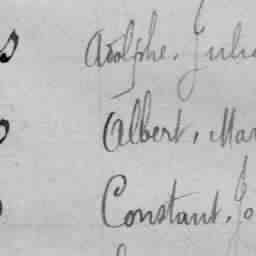 Adolphe. Juli
Albert, Mar
Constant. Jo